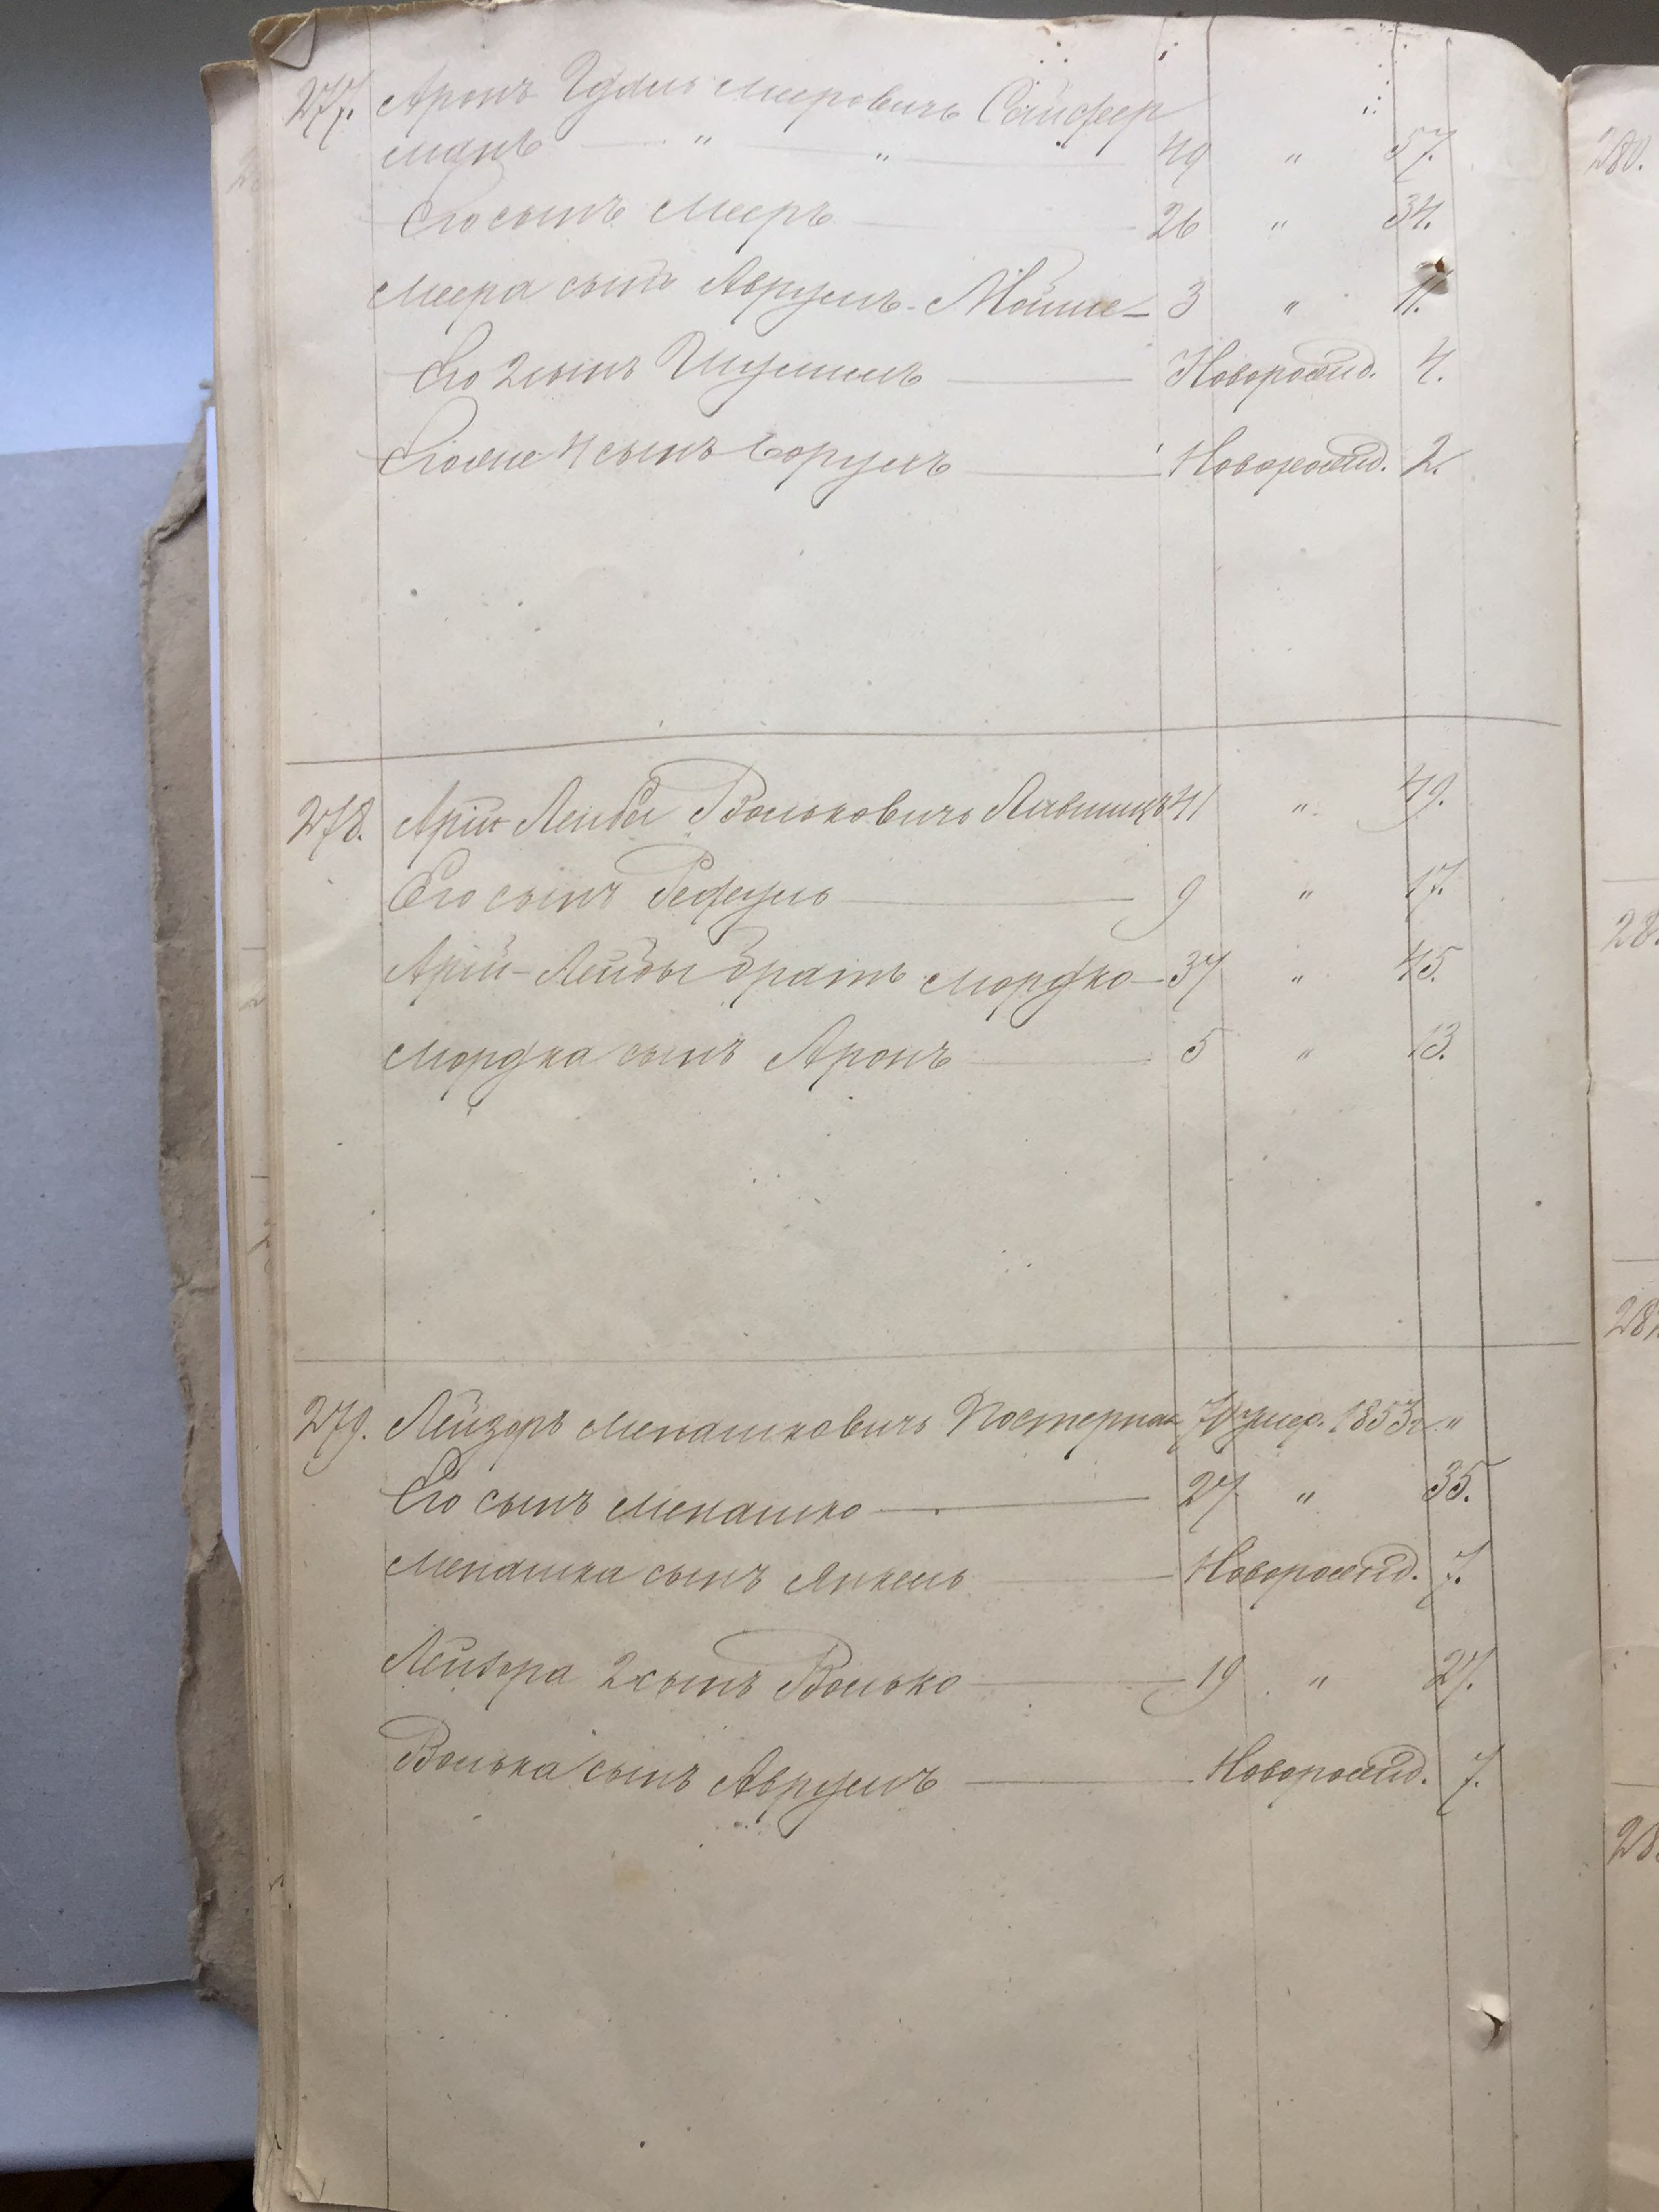 277. Аронъ Гдаль Мееровичъ Сейфер
манъ — " — " — 49 " 57.
Его сынъ Мееръ — 26 " 34.
Меера сынъ Аврумъ-Мойше — 3 " 11.
Его 2 сынъ — Новорожд. 4.
Его же 4 сынъ Борухъ — Новорожд. 2.
278. Арій Лейбы Вольковичъ 41 " 49.
Его сынъ Рефуль — 9 " 17.
Арій-Лейбы братъ Мордко — 37 " 45.
Мордка сынъ Аронъ — 5 " 13.
279. Лейзоръ Менашковичъ Постернак умер. 1853 г. "
Его сынъ Менашко — 27 " 35.
Менашка сынъ Янкель — Новорожд. 7.
Лейзора 2 сынъ Волько — 19 " 27.
Волька сынъ Аврумъ — Новорожд. 7.
280.